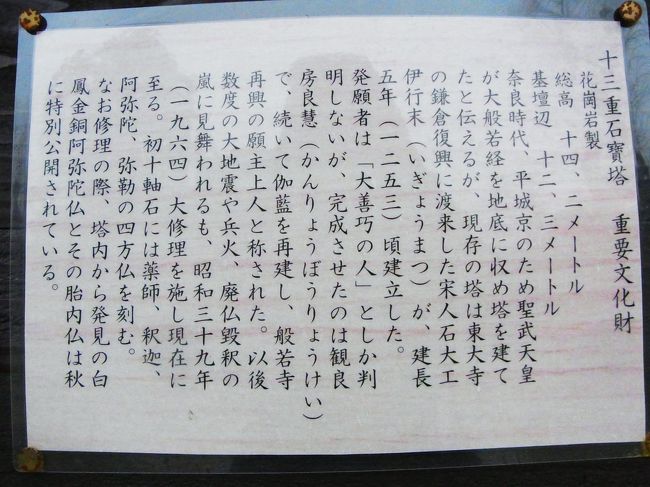 十三重石寶塔　重要文化財
花岡岩製
総高　十四、二メートル
基壇辺　十二、三メートル
奈良時代、平城京のため聖武天皇
が大般若経を地底に収め塔を建て
たと伝えるが、現存の塔は東大寺
の鎌倉復興に渡来した宋人石大工
伊行末（いぎょうまつ）が、建長
五年（一二五三）頃建立した。
発願者は「大善巧の人」としか判
明しないが、完成させたのは観良
房良慧（かんりょうぼうりょうけい）
で、続いて伽藍を再建し、般若寺
再興の願主上人と称された。以後
数度の大地震や兵火、廃仏毀釈の
嵐に見舞われるも、昭和三十九年
（一九六四）大修理を施し現在に
至る。初十軸石には薬師、釈迦、
阿弥陀、弥勒の四方仏を刻む。
なお修理の際、塔内から発見の白
鳳金銅阿弥陀仏とその胎内仏は秋
に特別公開されている。